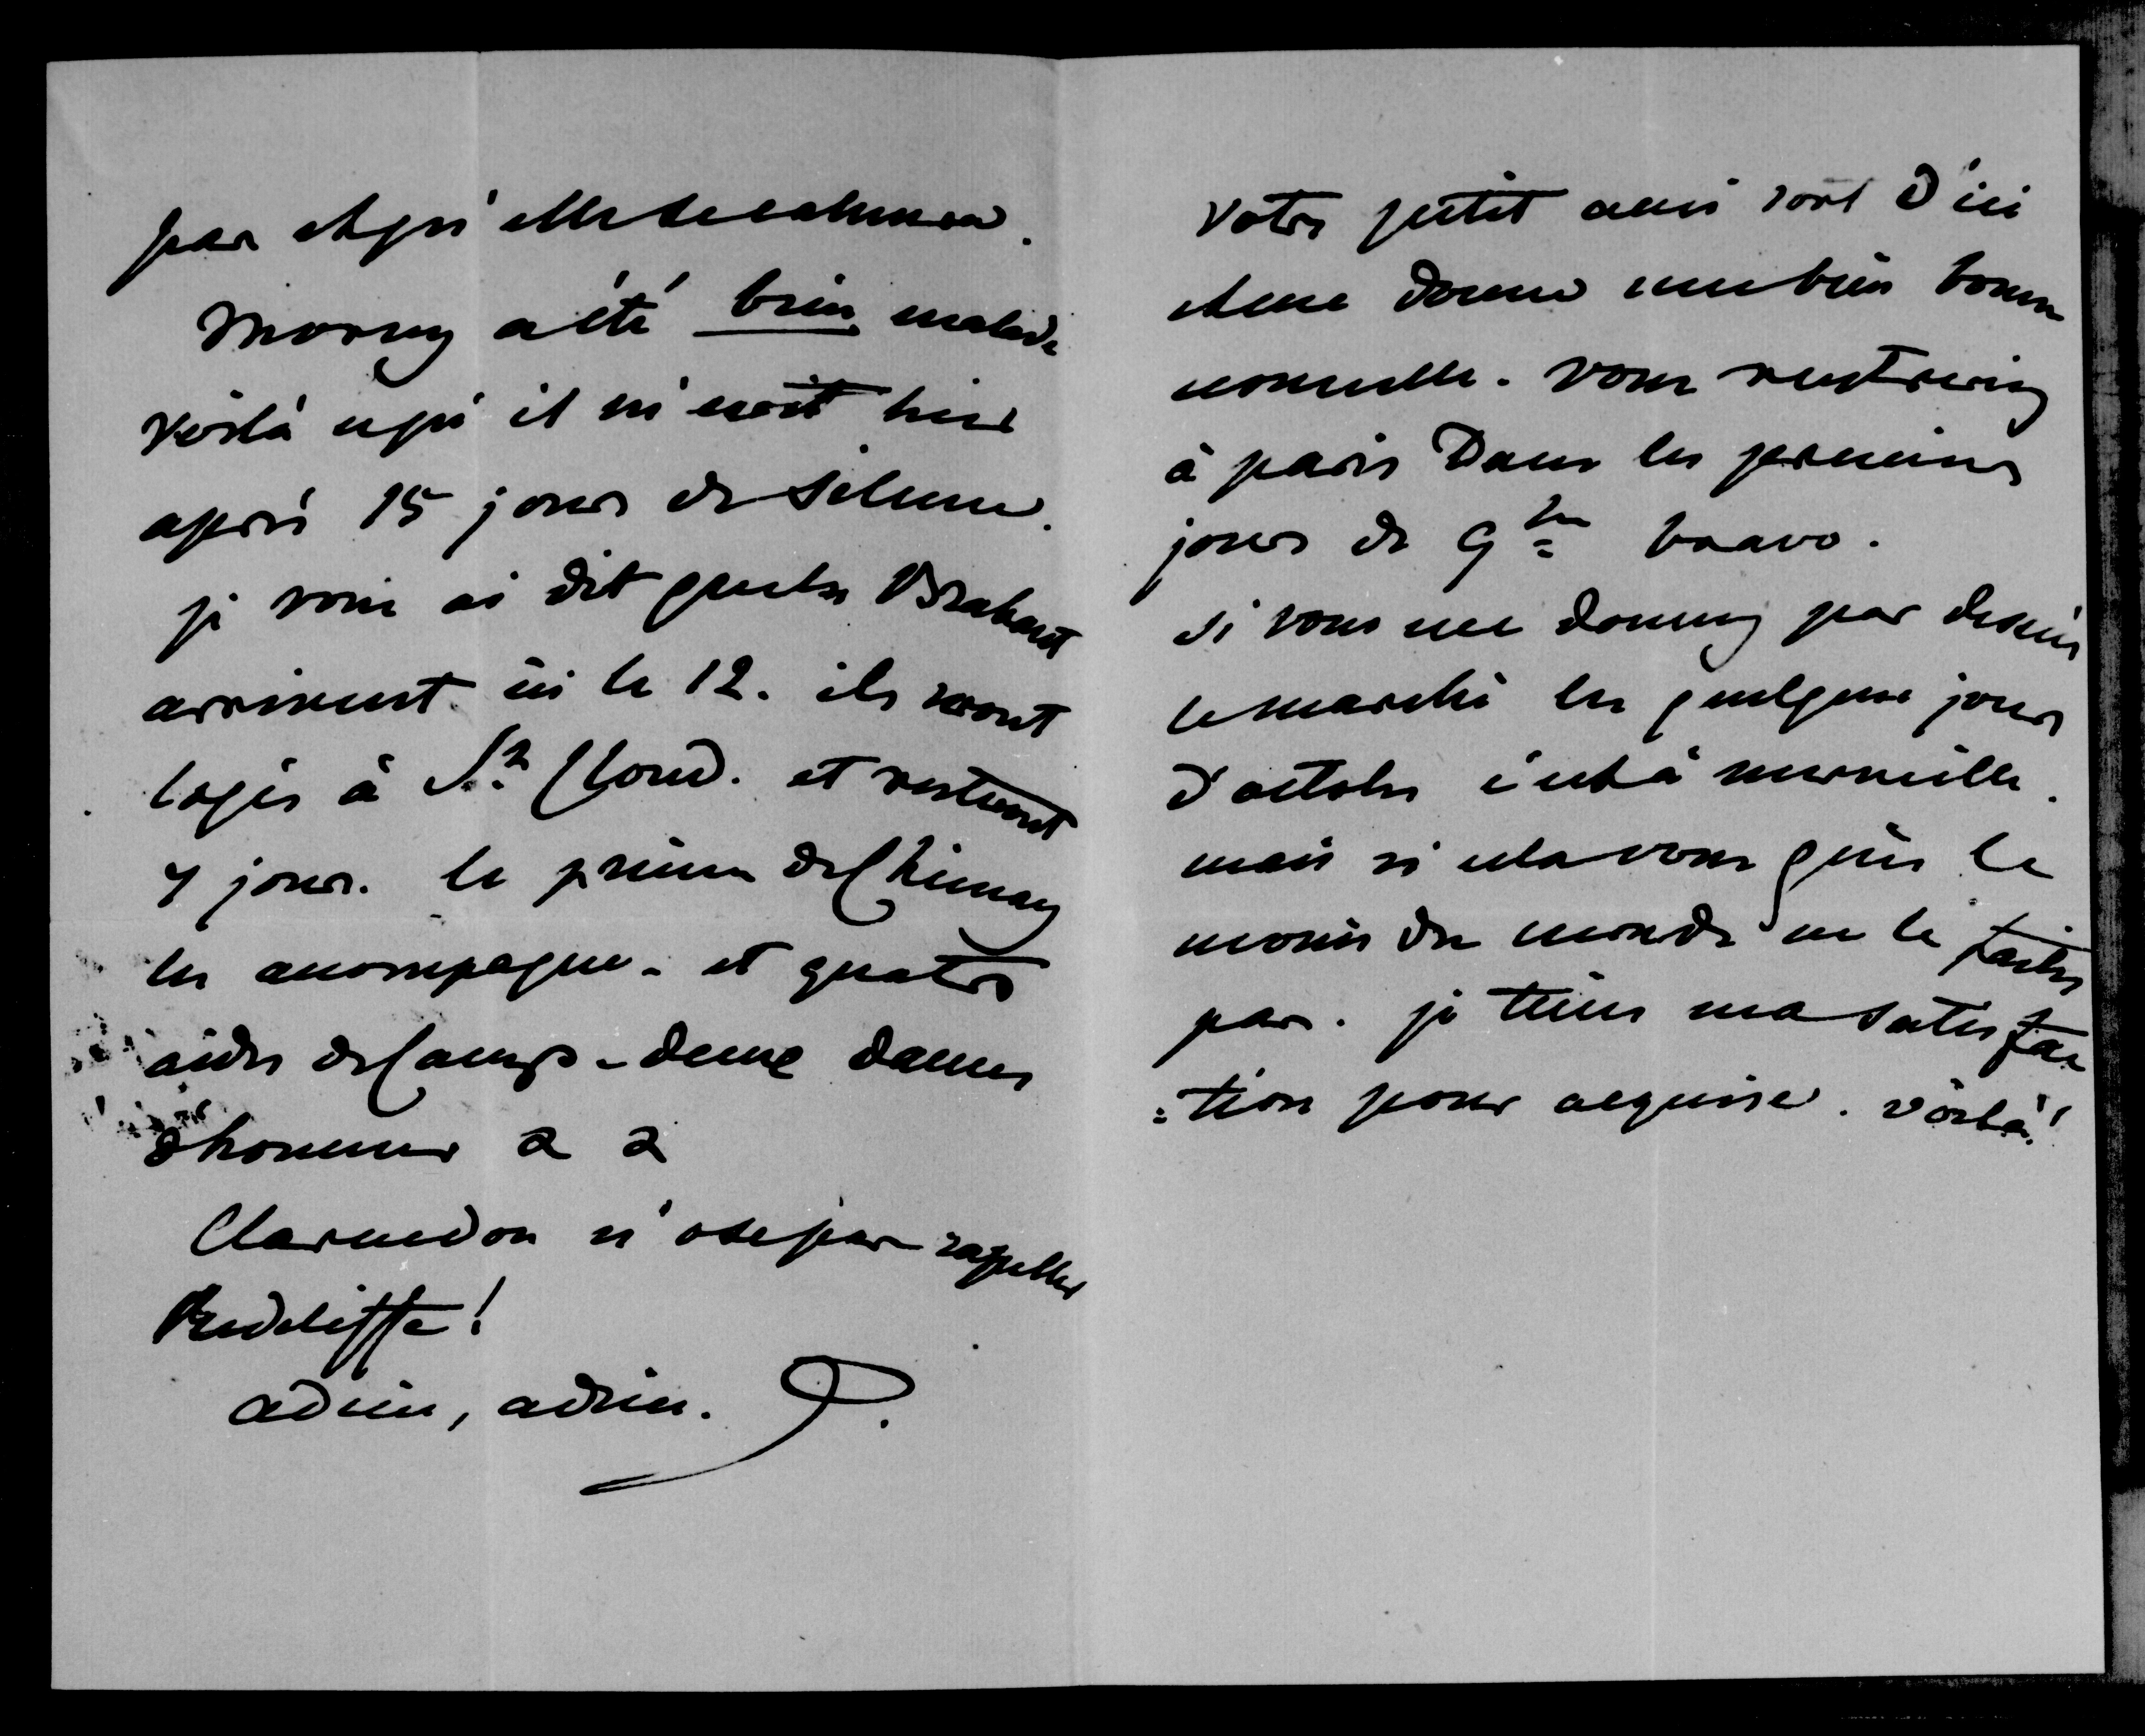 pas et qu'elle se calmera.
Morny a été bien malade
voilà ce qu'il m'écrit hier
après 15 jours de silence.
je vous ai dit que les Brabant
arrivent ici le 12. ils seront
logés à St Cloud. et resteront
7 jours. le prince de Chimay
les accompagne. et quatre
aides de Camp - deux dames
d'honneur a a
Clarendon n'ose pas rapeller
Redcliffe!
adieu, adieu. D.
votre petit ami sort d'ici
et me donne une bien bonne
nouvelle. vous rentreriez
à paris Dans les premiers
jours de 9bre bravo.
si vous me donnez par dessus
le marché les quelques jours
d'octobre c'est à merveille.
mais si cela vous gêne le
moins du monde ne le faites
pas. je tiens ma satisfac
=tion pour acquise. voilà!